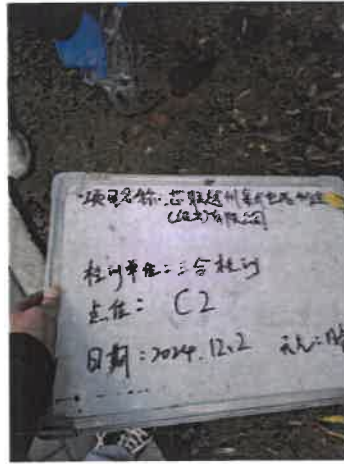 项目名称:芯联越州集成电路制造
(绍兴)有限公司
检测单位:三合检测
点位: C2
日期:2024.12.2 天气:晴